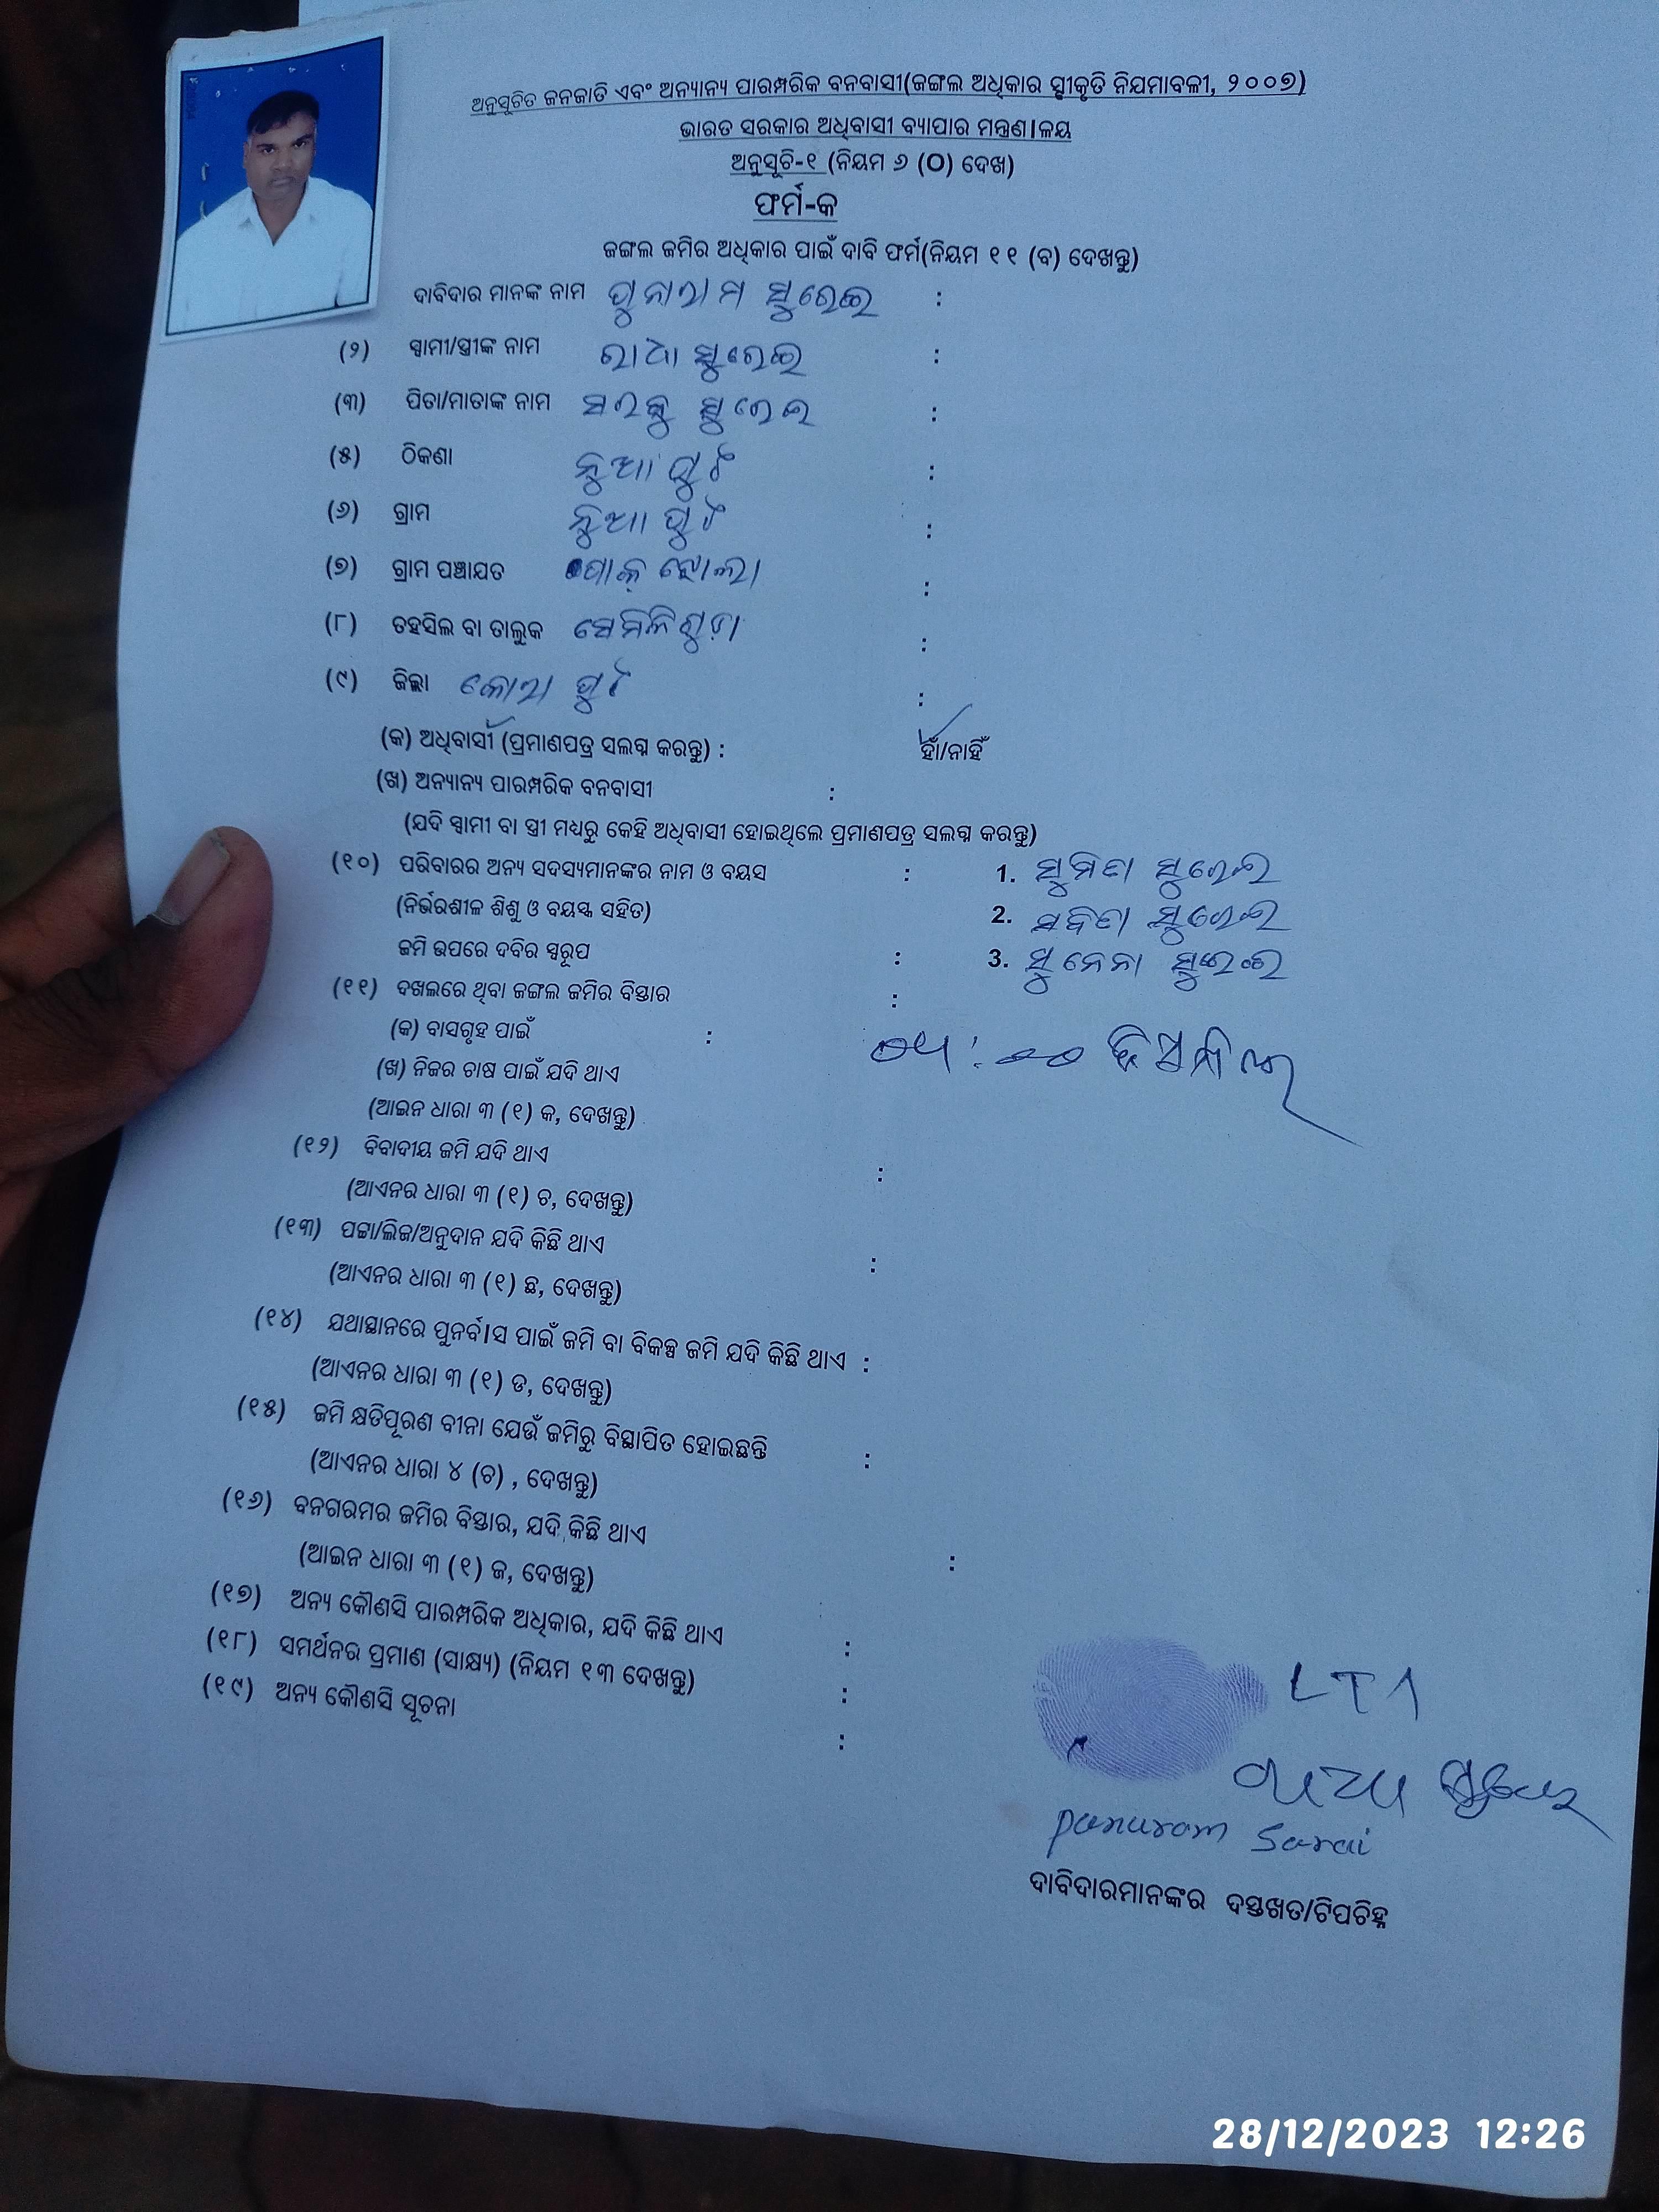 ଅନୁସୂଚିତ ଜନଜାତି ଏବଂ ଅନ୍ୟାନ୍ୟ ପାରମ୍ପରିକ ବନବାସୀ(ଜଙ୍ଗଲ ଅଧିକାର ସ୍ୱୀକୃତି ନିୟମାବଳୀ, ୨୦୦୭)
ଭାରତ ସରକାର ଅଧିବାସୀ ବ୍ୟାପାର ମନ୍ତ୍ରଣାଳୟ
ଅନୁସୂଚି-୧ (ନିୟମ ୬ (O) ଦେଖ)
ଫର୍ମ-କ
ଜଙ୍ଗଲ ଜମିର ଅଧିକାର ପାଇଁ ଦାବି ଫର୍ମ(ନିୟମ ୧୧ (ବ) ଦେଖନ୍ତୁ)
ଦାବିଦାର ମାନଙ୍କ ନାମ ପୁନାରାମ ସୁରେଇ :
(୨) ସ୍ୱାମୀ/ସ୍ତ୍ରୀଙ୍କ ନାମ ରାଧା ସୁରେଇ :
(୩) ପିତା/ମାତାଙ୍କ ନାମ ସୁରେଇ :
(୫) ଠିକଣା ନୁଆପୁଟ :
(୬) ଗ୍ରାମ ନୁଆପୁଟ :
(୭) ଗ୍ରାମ ପଞ୍ଚାୟତ ପାକଝୋଲା :
(୮) ତହସିଲ ବା ତାଲୁକ ସେମିଳିଗୁଡ଼ା :
(୯) ଜିଲ୍ଲା କୋରାପୁଟ :
(କ) ଅଧିବାସୀ (ପ୍ରମାଣପତ୍ର ସଲଗ୍ନ କରନ୍ତୁ) : ହଁା/ନାହିଁ
(ଖ) ଅନ୍ୟାନ୍ୟ ପାରମ୍ପରିକ ବନବାସୀ :
(ଯଦି ସ୍ୱାମୀ ବା ସ୍ତ୍ରୀ ମଧ୍ୟରୁ କେହି ଅଧିବାସୀ ହୋଇଥିଲେ ପ୍ରମାଣପତ୍ର ସଲଗ୍ନ କରନ୍ତୁ)
(୧୦) ପରିବାରର ଅନ୍ୟ ସଦସ୍ୟମାନଙ୍କର ନାମ ଓ ବୟସ : 1. ସୁମିତା ସୁରେଇ
(ନିର୍ଭରଶୀଳ ଶିଶୁ ଓ ବୟସ୍କ ସହିତ) 2. ସବିତା ସୁରେଇ
ଜମି ଉପରେ ଦବିର ସ୍ୱରୂପ : 3. ସୁନେନା ସୁରେଇ
(୧୧) ଦଖଲରେ ଥିବା ଜଙ୍ଗଲ ଜମିର ବିସ୍ତାର :
(କ) ବାସଗୃହ ପାଇଁ :
(ଖ) ନିଜର ଚାଷ ପାଇଁ ଯଦି ଥାଏ
(ଆଇନ ଧାରା ୩ (୧) କ, ଦେଖନ୍ତୁ)
(୧୨) ବିବାଦୀୟ ଜମି ଯଦି ଥାଏ :
(ଆଏନର ଧାରା ୩ (୧) ଚ, ଦେଖନ୍ତୁ)
(୧୩) ପଟ୍ଟା/ଲିଜ/ଅନୁଦାନ ଯଦି କିଛି ଥାଏ :
(ଆଏନର ଧାରା ୩ (୧) ଛ, ଦେଖନ୍ତୁ)
(୧୪) ଯଥାସ୍ଥାନରେ ପୁନର୍ବାସ ପାଇଁ ଜମି ବା ବିକଳ୍ପ ଜମି ଯଦି କିଛି ଥାଏ :
(ଆଏନର ଧାରା ୩ (୧) ଡ, ଦେଖନ୍ତୁ)
(୧୫) ଜମି କ୍ଷତିପୂରଣ ବୀନା ଯେଉଁ ଜମିରୁ ବିସ୍ଥାପିତ ହୋଇଛନ୍ତି :
(ଆଏନର ଧାରା ୪ (ଚ) , ଦେଖନ୍ତୁ)
(୧୬) ବନଗରମର ଜମିର ବିସ୍ତାର, ଯଦି କିଛି ଥାଏ
(ଆଇନ ଧାରା ୩ (୧) ଜ, ଦେଖନ୍ତୁ) :
(୧୭) ଅନ୍ୟ କୌଣସି ପାରମ୍ପରିକ ଅଧିକାର, ଯଦି କିଛି ଥାଏ :
(୧୮) ସମର୍ଥନର ପ୍ରମାଣ (ସାକ୍ଷ୍ୟ) (ନିୟମ ୧୩ ଦେଖନ୍ତୁ) :
(୧୯) ଅନ୍ୟ କୌଣସି ସୂଚନା :
LTI
ରାଧା ସୁରେଇ
panuram Sarai
ଦାବିଦାରମାନଙ୍କର ଦସ୍ତଖତ/ଟିପଚିହ୍ନ
28/12/2023 12:26